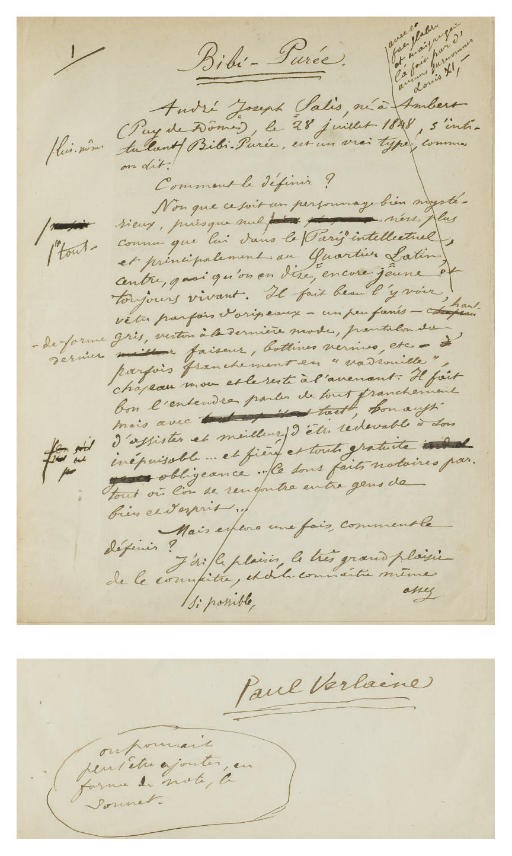 1
Bibi-Purée.
avec sa
face glabre
et maigre qui
l'a fait par d'aucuns surnommer
Louis XI,
André Joseph Salis, né à Ambert
(Puy de Dôme), le 28 juillet 1848, s'inti-
tulant Bibi-Purée, est un vrai type, comme
on dit.
lui-même
Comment le définir ?
Non que ce soit un personnage bien mysté-
rieux, puisque nul n'est plus
connu que lui dans le Paris intellectuel,
tout
et principalement au Quartier Latin,
centre, quoi qu'on en dise, encore jeune et
toujours vivant. Il fait beau l'y voir,
vêtu parfois d'oripeaux - un peu fanés -
haut-
de-forme gris, veston à la dernière mode, pantalon du
dernier faiseur, bottines vernies, etc -
parfois franchement en "vadrouille",
chapeau mou et le reste à l'avenant. Il fait
bon l'entendre parler de tout franchement
mais avec bon aussi
d'assister et meilleur d'être redevable à son
inépuisable... et fière et toute gratuite
obligeance... Ce sont faits notoires par-
tout où l'on se rencontre entre gens de
bien et d'esprit...
Mais encore une fois, comment le
définir ?
J'ai le plaisir, le très grand plaisir
de le connaître, et de le connaître même
si possible,
assez
Paul Verlaine
on pourrait
peut-être ajouter, en
forme de note, le
Sonnet.